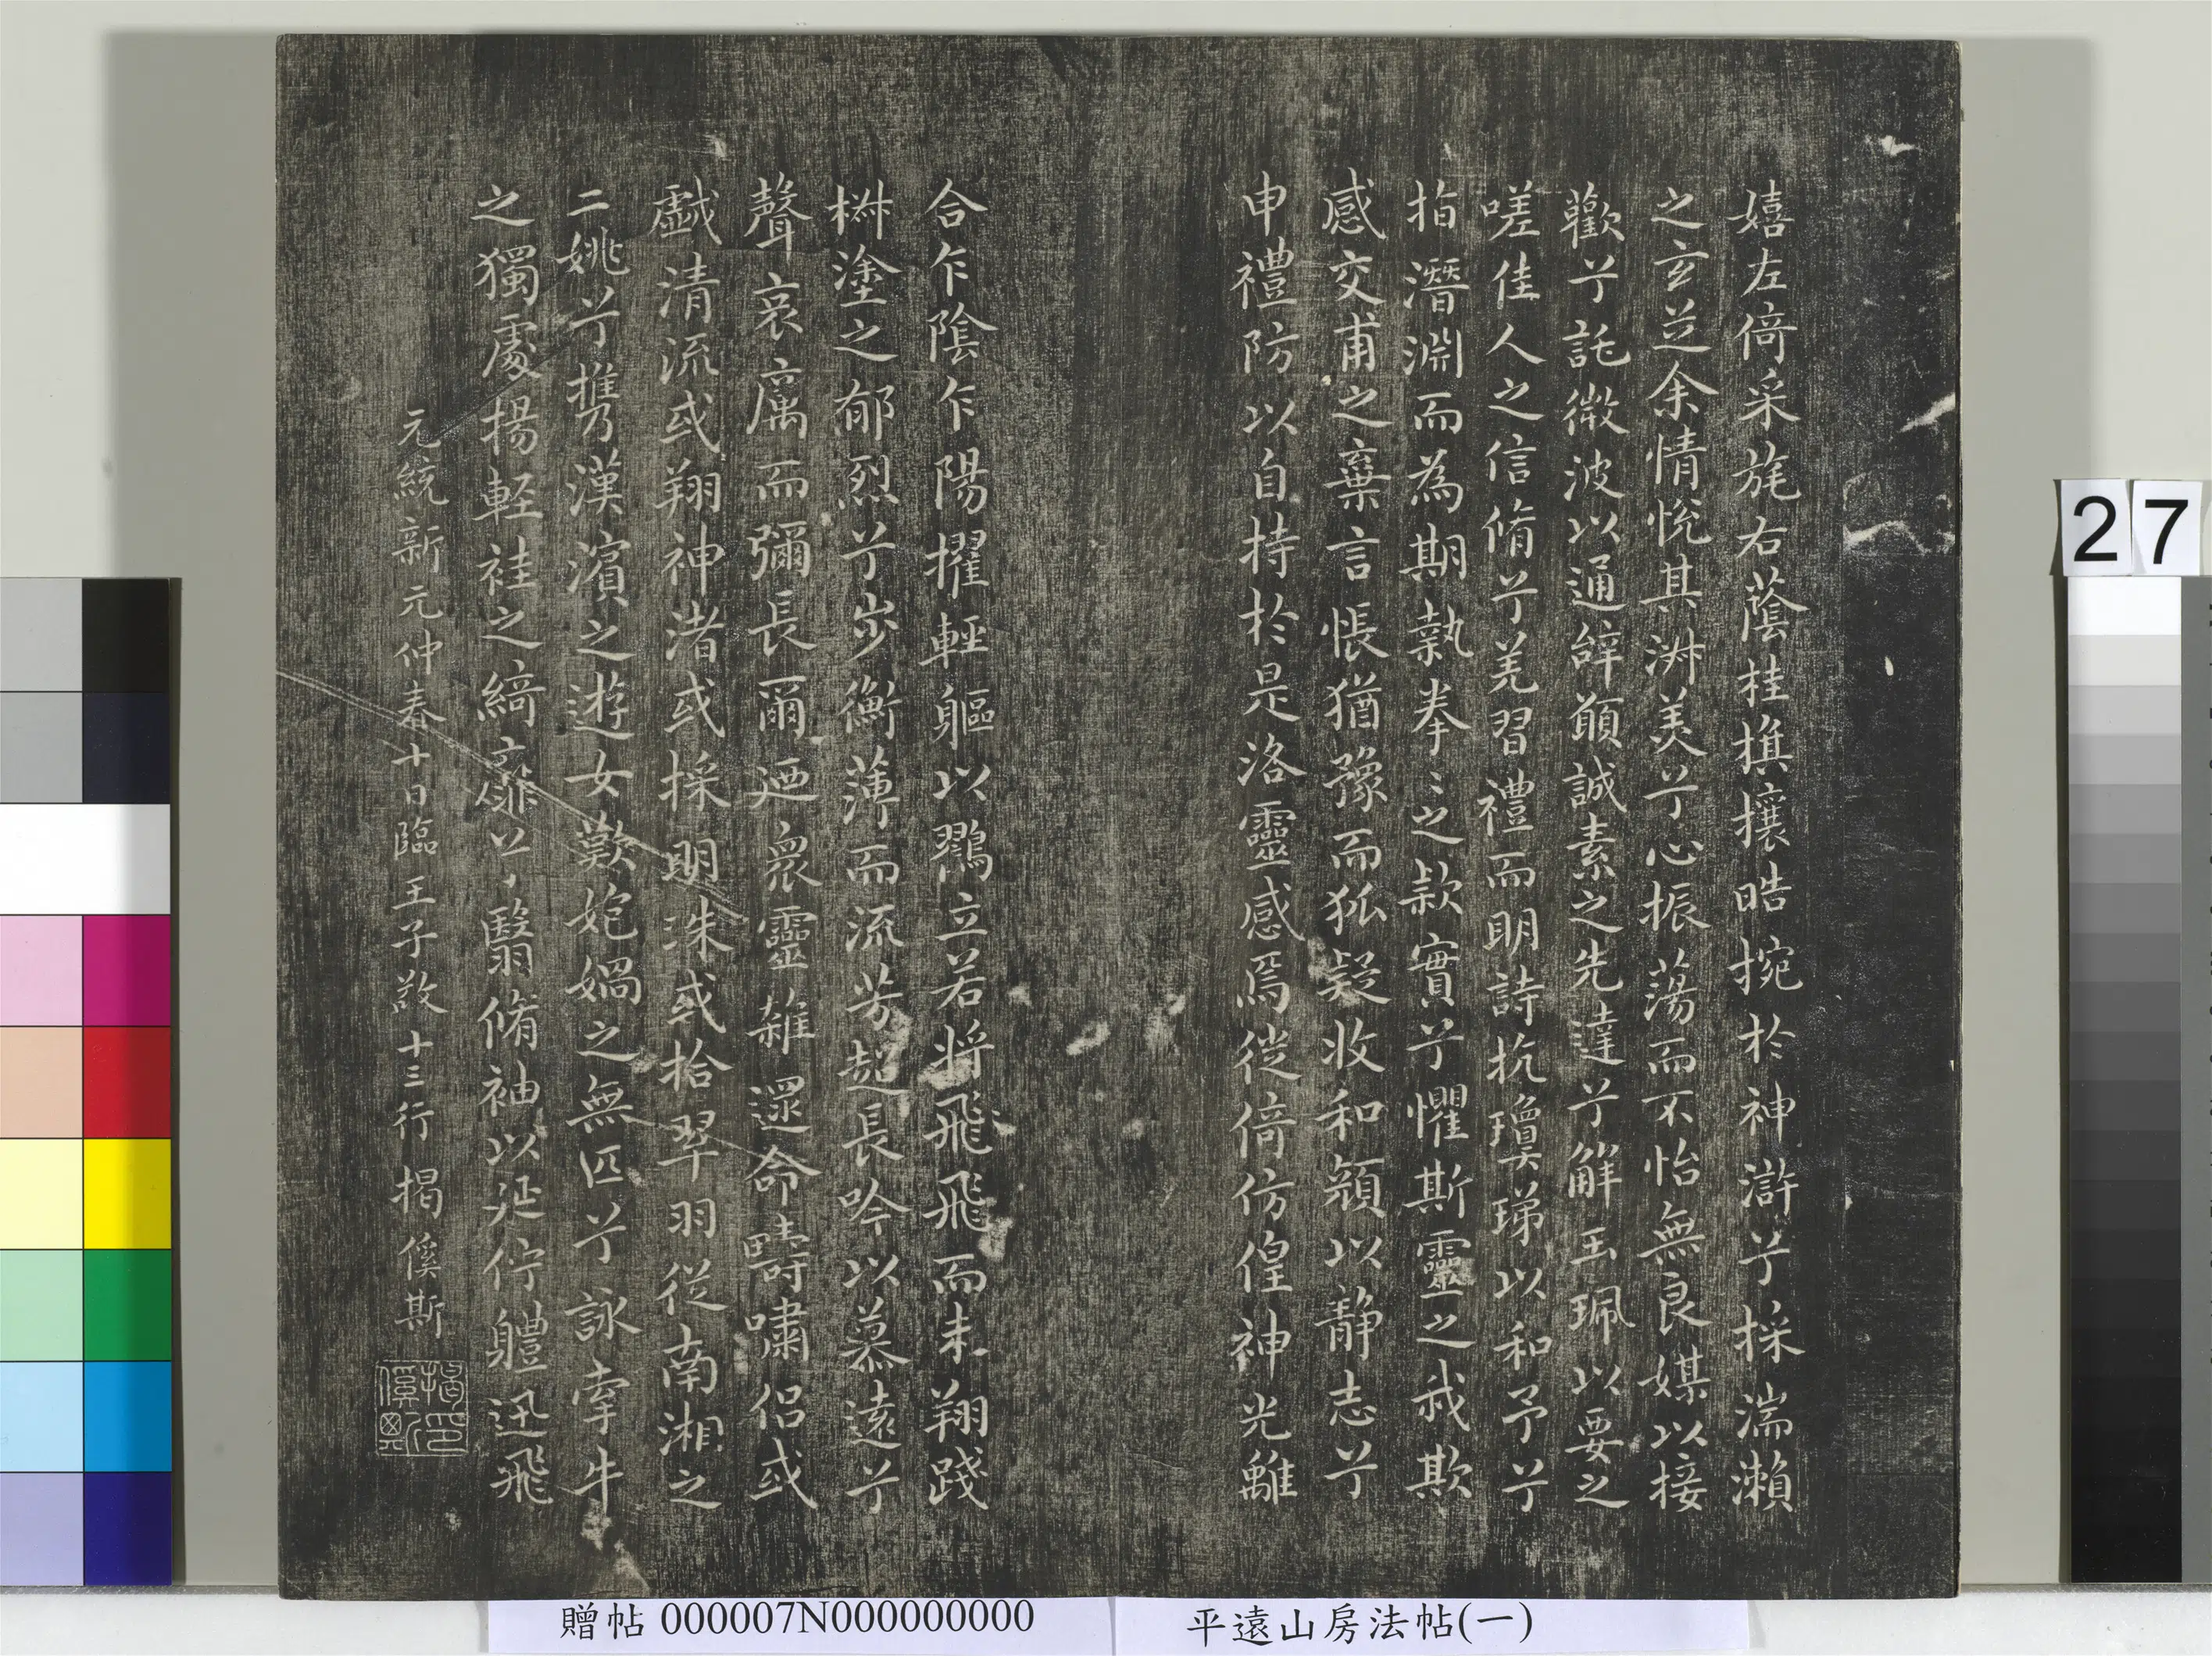 嬉左倚采旄右蔭桂旗攘皓捥於神滸兮採湍瀨
之玄芝余情悅其淋美兮心振蕩而不怡無良媒以接
歡兮託微波以通辝願誠素之先達兮解玉珮以要之
嗟佳人之信脩兮羌習禮而明詩抗瓊珶以和予兮
指潛淵而為期執拳〻之款實兮懼斯靈之我欺
感交甫之棄言悵猶豫而狐疑收和顏以静志兮
申禮防以自持於是洛靈感焉徙倚仿偟神光離
合乍陰乍陽擢輕軀以鶴立若将飛飛而未翔踐
椒塗之郁烈兮步衡薄而流芳超長吟以慕遠兮
聲哀厲而彌長爾迺衆靈雜遝命疇嘯侣或
戲清流或翔神渚或採明珠或拾翠羽從南湘之
二姚兮携漢濱之遊女歎妑媧之無匹兮詠牽牛
之獨處揚輕袿之綺靡兮翳脩袖以延佇軆迅飛
元統新元仲春十日臨王子敬十三行揭傒斯
揭傒斯印
27
贈帖 000007N000000000
平遠山房法帖(一)